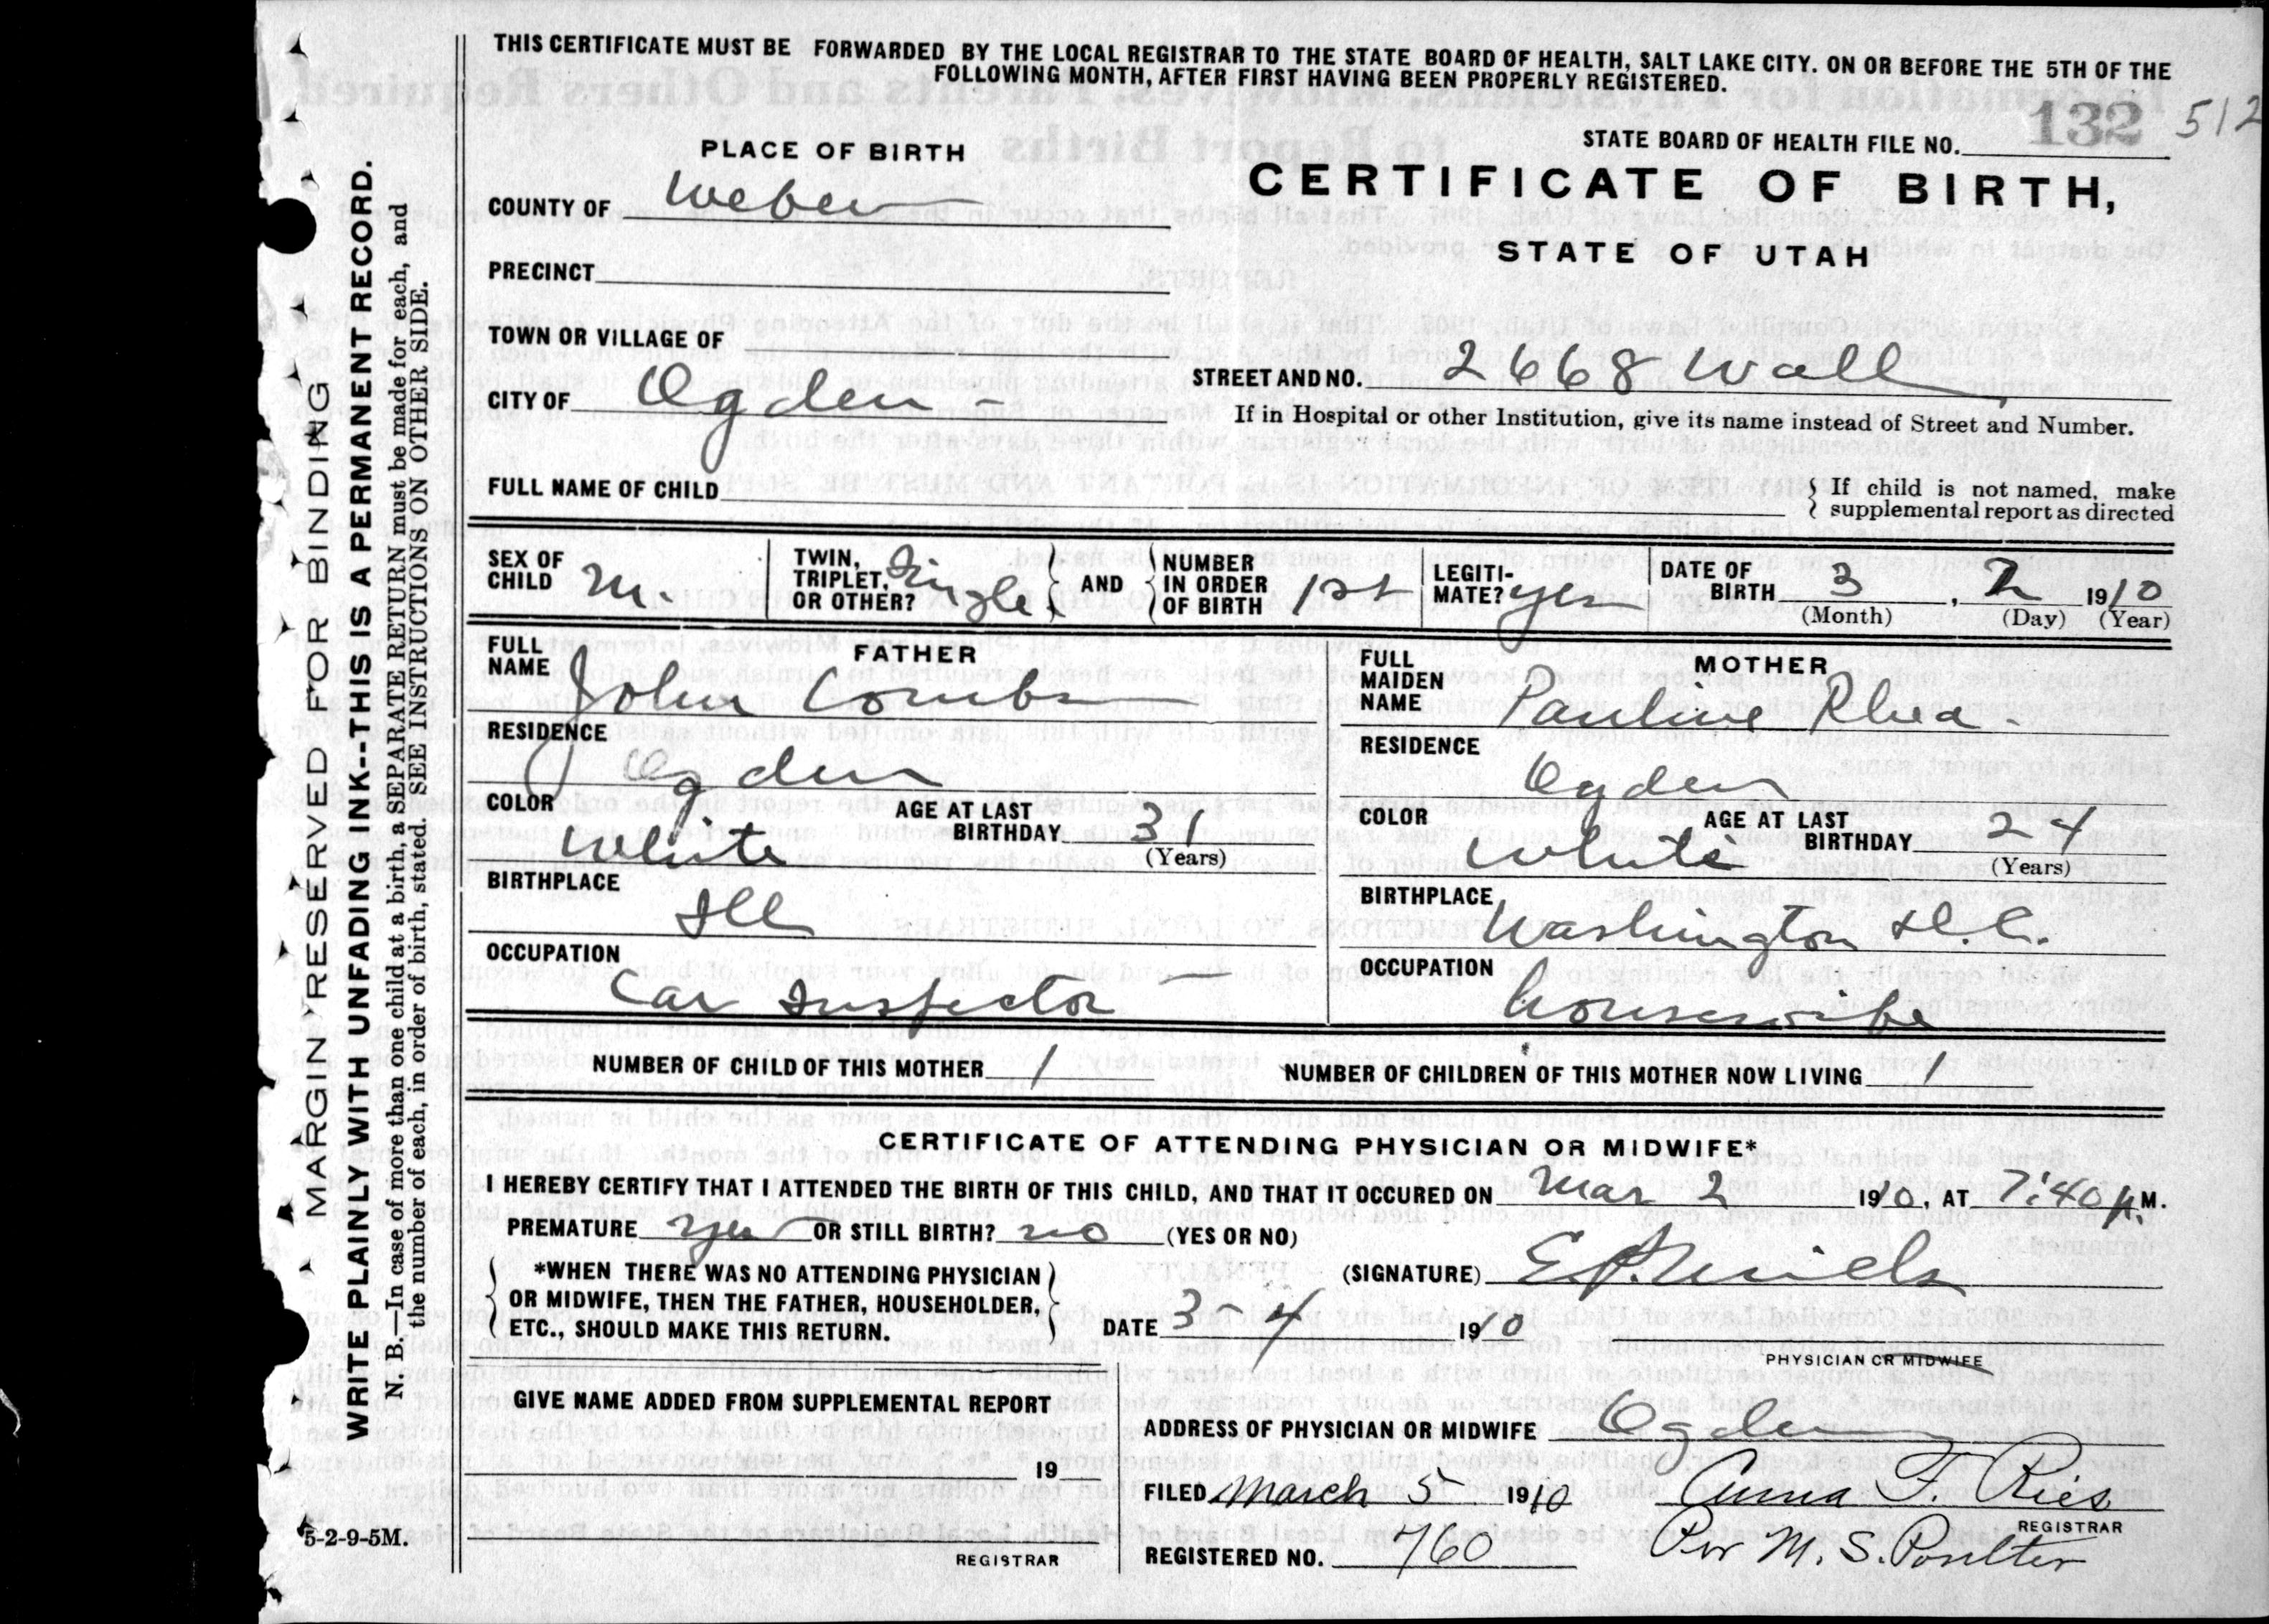 THIS CERTIFICATE MUST BE FORWARDED BY THE LOCAL REGISTRAR TO THE STATE BOARD OF HEALTH, SALT LAKE CITY. ON OR BEFORE THE 5TH OF THE
FOLLOWING MONTH, AFTER FIRST HAVING BEEN PROPERLY REGISTERED.
132 512
PLACE OF BIRTH
STATE BOARD OF HEALTH FILE NO.
CERTIFICATE OF BIRTH,
STATE OF UTAH
COUNTY OF Weber
PRECINCT
TOWN OR VILLAGE OF
CITY OF Ogden -
STREET AND NO. 2668 Wall
If in Hospital or other Institution, give its name instead of Street and Number.
FULL NAME OF CHILD
If child is not named, make
supplemental report as directed
SEX OF CHILD M.
TWIN, TRIPLET, OR OTHER? Single
AND
NUMBER IN ORDER OF BIRTH 1st
LEGITI-MATE? yes
DATE OF BIRTH 3, 2 1910
(Month) (Day) (Year)
FATHER
FULL NAME John Combs
RESIDENCE
Ogden
COLOR White
AGE AT LAST BIRTHDAY 31
(Years)
BIRTHPLACE
Ill
OCCUPATION
Car Inspector
MOTHER
FULL MAIDEN NAME Pauline Rhea -
RESIDENCE
Ogden
COLOR White
AGE AT LAST BIRTHDAY 24
(Years)
BIRTHPLACE
Washington D.C.
OCCUPATION
housewife
NUMBER OF CHILD OF THIS MOTHER 1
NUMBER OF CHILDREN OF THIS MOTHER NOW LIVING 1
CERTIFICATE OF ATTENDING PHYSICIAN OR MIDWIFE*
I HEREBY CERTIFY THAT I ATTENDED THE BIRTH OF THIS CHILD, AND THAT IT OCCURED ON Mar 2 1910, AT 7:40 P.M.
PREMATURE yes OR STILL BIRTH? no (YES OR NO)
*WHEN THERE WAS NO ATTENDING PHYSICIAN
OR MIDWIFE, THEN THE FATHER, HOUSEHOLDER,
ETC., SHOULD MAKE THIS RETURN.
(SIGNATURE) E.P. Mills
DATE 3-4 1910
PHYSICIAN OR MIDWIFE
GIVE NAME ADDED FROM SUPPLEMENTAL REPORT
19
REGISTRAR
ADDRESS OF PHYSICIAN OR MIDWIFE Ogden
FILED March 5 1910
Anna F. Ries
REGISTRAR
REGISTERED NO. 760
Per M. S. Poulter
5-2-9-5M.
MARGIN RESERVED FOR BINDING
WRITE PLAINLY WITH UNFADING INK--THIS IS A PERMANENT RECORD.
N. B.—In case of more than one child at a birth, a SEPARATE RETURN must be made for each, and
the number of each, in order of birth, stated. SEE INSTRUCTIONS ON OTHER SIDE.